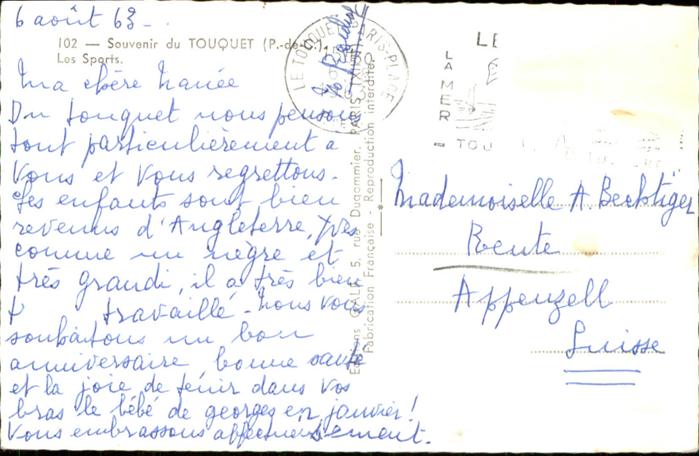 6 août 63 -
102 — Souvenir du TOUQUET (P.-de-C.).
Les Sports.
Ma chère Nanée
Du Touquet nous pensons
tout particulièrement a
vous et vous regrettons.
Les enfants sont bien
revenus d'Angleterre, Yves
comme un nègre et
très grandi, il a très bien
travaillé - Nous vous
souhaitons un bon
anniversaire, bonne santé
et la joie de tenir dans vos
bras le bébé de georges en janvier!
Vous embrassons affectueusement.
LE TOUQUET-PARIS-PLAGE
Editions 5, rue Dugommier, PARIS
Fabrication Française - Reproduction interdite
LE
LA MER
TOU
Mademoiselle A. Bechtiger
Reute
Appenzell
Suisse